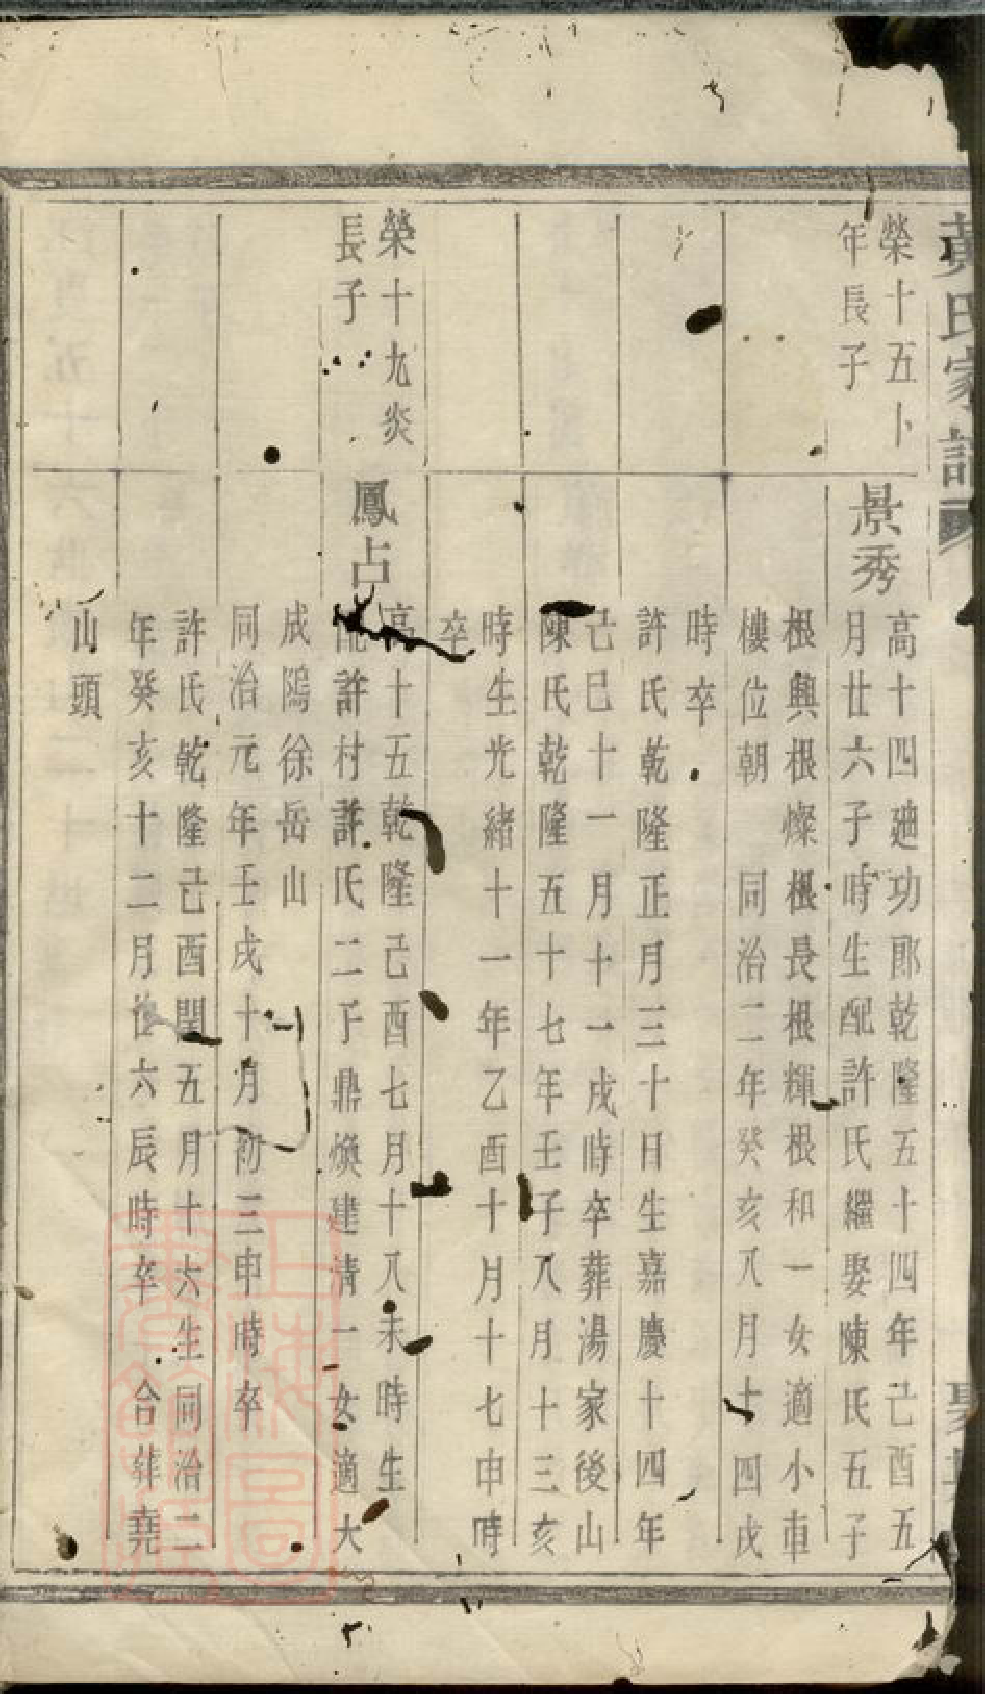 黃氏家譜
榮十五卜
年長子
景秀
高十四廸功郎乾隆五十四年己酉五
月廿六子時生配許氏繼娶陳氏五子
根興根燦根長根輝根和一女適小車
樓位朝　同治二年癸亥八月十四戌
時卒
許氏乾隆正月三十日生嘉慶十四年
己巳十一月十一戌時卒葬湯家後山
陳氏乾隆五十七年壬子八月十三亥
時生光緒十一年乙酉十月十七申時
卒
榮十九炎
長子
鳳占
高十五乾隆己酉七月十八未時生
配許村許氏二子鼎煥建清一女適大
成隖徐岳山
同治元年壬戌十月初三申時卒
許氏乾隆己酉閏五月十六生同治二
年癸亥十二月初六辰時卒　合葬堯
山頭